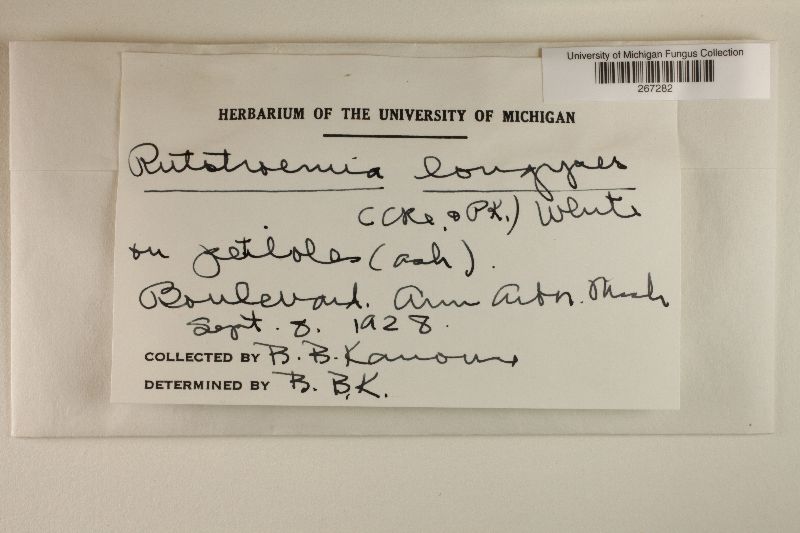 University of Michigan Fungus Collection
267282
HERBARIUM OF THE UNIVERSITY OF MICHIGAN
Rutstroemia longipes
(Cke. & Pk.) White
on petioles (ash).
Boulevard. Ann Arbor. Mich
Sept. 8. 1928.
COLLECTED BY B. B. Kanouse
DETERMINED BY B. B. K.